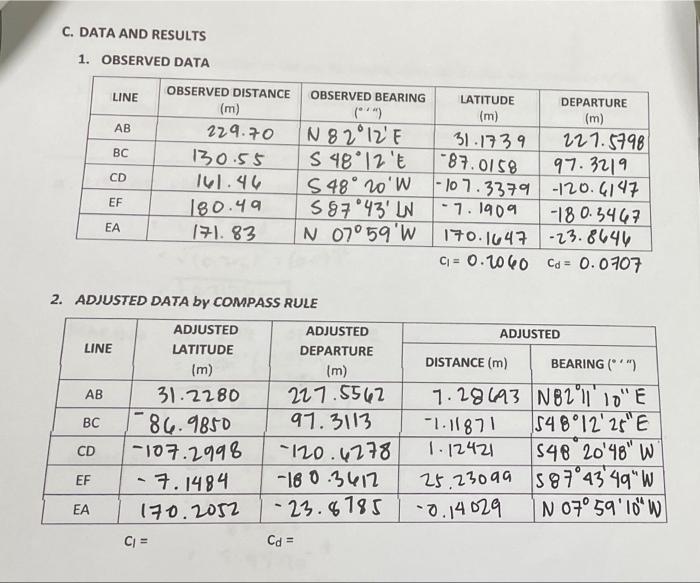 C. DATA AND RESULTS
1. OBSERVED DATA
LINE OBSERVED DISTANCE (m) OBSERVED BEARING (° ' ") LATITUDE (m) DEPARTURE (m)
AB 229.70 N 82°12'E 31.1739 227.5798
BC 130.55 S 48°12'E -87.0158 97.3219
CD 161.46 S 48° 20'W -107.3379 -120.6147
EF 180.49 S 87°43' W -7.1909 -180.3467
EA 171.83 N 07°59'W 170.1647 -23.8646
Cl = 0.2060 Cd = 0.0707
2. ADJUSTED DATA by COMPASS RULE
LINE ADJUSTED LATITUDE (m) ADJUSTED DEPARTURE (m) ADJUSTED
DISTANCE (m) BEARING (° ' ")
AB 31.2280 227.5562 7.28693 N82°11'10" E
BC -86.9850 97.3113 -1.11871 S48°12'25"E
CD -107.2998 -120.6278 1.12421 S48°20'48" W
EF -7.1484 -180.3612 25.23099 S87°43'49"W
EA 170.2052 -23.8785 -0.14029 N 07°59'10"W
Cl = Cd =